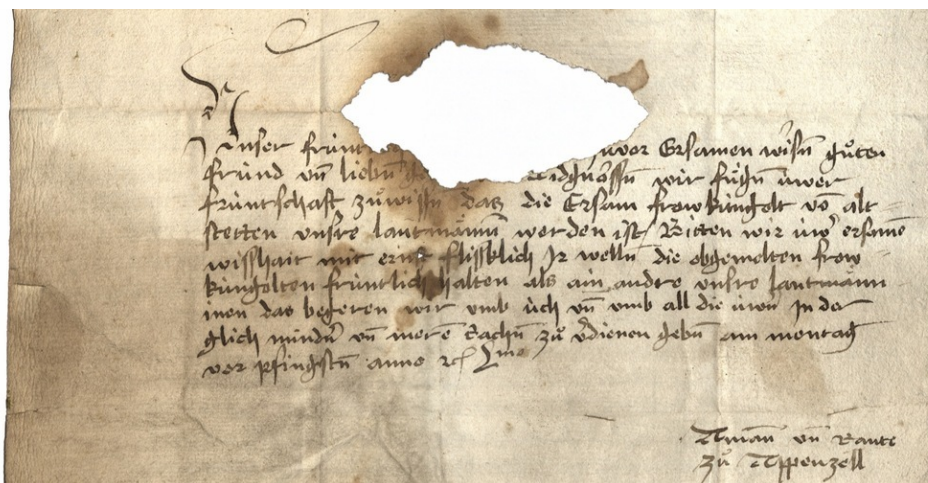 Unser frünt üwer Ersamen wisñ gůten
fründ vñ liebñ Eidgnossñ wir fůgñ üwer
früntschaft zůwissñ das die Ersam frow küngolt võ alt
stetten vnsre lantmãnñ worden ist Bitten wir üwer ersamē
wisshait mit ernst flissklich Ir wellñ die obgemelten frow
küngolten früntlich halten als ain andre vnsre lantmãnn
inen das begeren wir vmb üch vñ vmb all die üwñ In der
glich mindñ vñ merē sachñ zů v̓dienen gebñ am montag
vor pfingstñ anno Lmo
Amañ vñ Raute
zů Appenzell